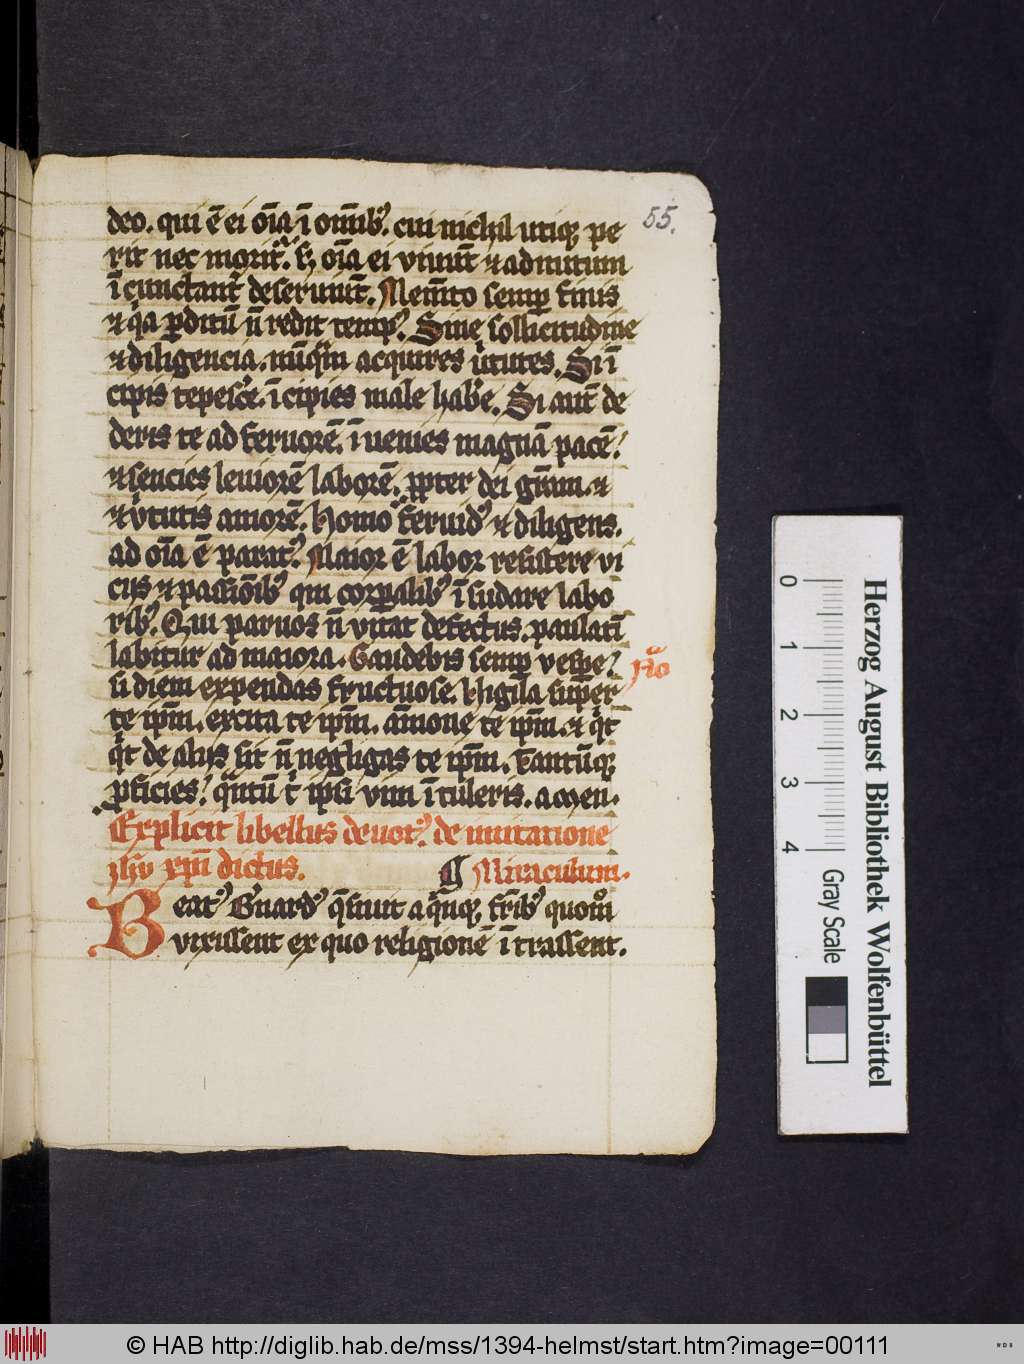 55.
deo. qui ē ei oīa ī omībꝰ. cui nichil utiqꝫ pe
rit nec morit᷑. sꝫ oīa ei viuūt ⁊ ad nutum
ī cunctant᷑ deseruiūt. Memēto semꝑ finis
⁊ qͥa ꝑditū nō redit tempꝰ. Sine sollicitudine
⁊ diligencia. nūqͣm acquires v̓tutes. Si ī
cipis tepesc̓e. ī cipies male hab̓e. Si aūt de
deris te ad feruorē. ī uenies magnā pacē.
⁊ sencies leuiorē laborē. ꝓpter dei gr̄am. ⁊
⁊ v̓tutis amorē. Homo feruidꝰ ⁊ diligens.
ad oīa ē paratꝰ. Maior ē labor resistere vi
cijs ⁊ passiōibꝰ qm̄ corꝑalibꝰ ī sudare labo
ribꝰ. Qui paruos nō vitat defectus. paulatī
labitur ad maiora. Gaudebis semꝑ vesꝑe.
si diem expendas fructuose. Uigila super
te ipm̄. excita te ipm̄. āmone te ipm̄. ⁊ qͥt
qͥt de alijs sit nō negligas te ipm̄. Tantūqꝫ
ꝓficies. qͣntū t̄ ipsi vim ī tuleris. amen.
Explicit libellus deuotꝰ. de imitatione
jhū xpī dictus. ¶ Miraculum.
Beatꝰ B̓nardꝰ q̄siuit a qͥusqꝫ fr̄ibꝰ quomō
vixissent ex quo religionē ī trassent.
0 1 2 3 4
Gray Scale
Herzog August Bibliothek Wolfenbüttel
© HAB http://diglib.hab.de/mss/1394-helmst/start.htm?image=00111